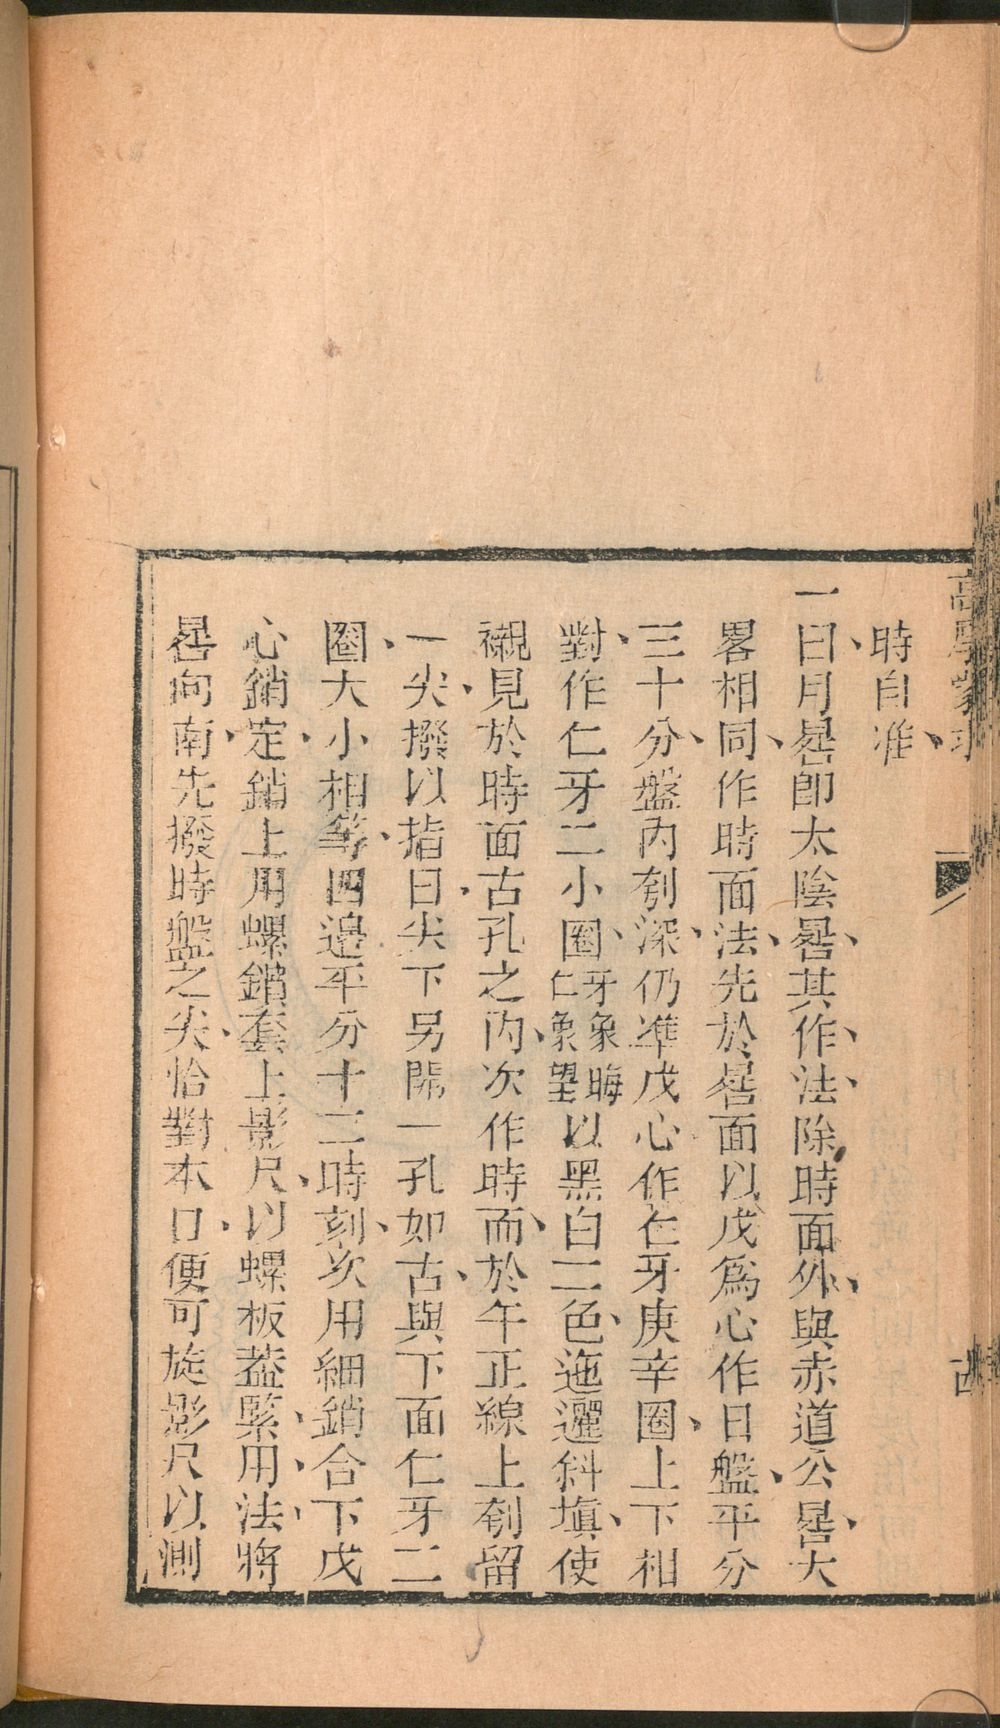 時自准
一日月晷卽太陰晷其作法除時面外與赤道公晷大
畧相同作時面法先於晷面以戊爲心作日盤平分
三十分盤內刳深仍準戊心作仁牙庚辛圈上下相
對作仁牙二小圈牙象晦仁象望以黑白二色迤邐斜塡使
襯見於時面古孔之內次作時面於午正線上刳留
一尖撥以指日尖下另開一孔如古與下面仁牙二
圈大小相等四邊平分十二時刻次用細銷合下戊
心銷定銷上用螺鎖套上影尺以螺板葢緊用法將
晷向南先撥時盤之尖恰對本日便可旋影尺以測